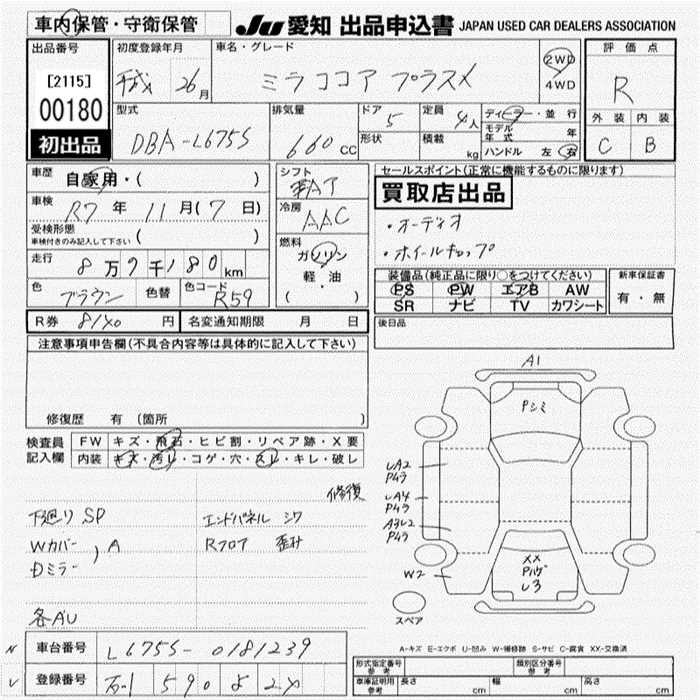 車内保管・守衛保管
JU 愛知 出品申込書 JAPAN USED CAR DEALERS ASSOCIATION
出品番号
[2115]
00180
初出品
初度登録年月
平成 26月
車名・グレード
ミラココア プラスX
2WD
4WD
評価点
R
外装 内装
C B
型式
DBA-L675S
排気量
660cc
ドア
5
形状
定員
4人
積載
kg
ディーラー・並行
モデル年式 年
ハンドル 左 右
車歴
自家用・( )
車検
R7年 11月(7日)
受検形態
車検付きのみ記入して下さい ( )
走行
8万9千180km
色
ブラウン
色替
色コード
R59
R券 8140円
名変通知期限 月 日
シフト
AT
冷房
AAC
燃料
ガソリン
軽・油
( )
セールスポイント(正常に機能するものに限ります)
買取店出品
・オーディオ
・ホイールキャップ
装備品(純正品に限り○をつけてください)
PS PW エアB AW
SR ナビ TV カワシート
新車保証書
有・無
後日品
注意事項申告欄(不具合内容等は具体的に記入して下さい)
修復歴 有 (箇所 )
検査員記入欄
FW キズ・飛石・ヒビ割・リペア跡・X要
内装 キズ・汚レ・コゲ・穴・スレ・キレ・破レ
修復
下廻り SP
Wカバー
Dミラー
A
各AU
エンドパネル シワ
Rフロア 歪ミ
A1
Pシミ
UA2
P4ラ
UA4
P4ラ
A3U2
P4ラ
W2
XX
Pハゲ
U3
スペア
A-キズ E-エクボ U-凹み W-補修跡 S-サビ C-腐食 XX-交換済
N
車台番号 L675S-0181239
V
登録番号
型式指定番号
参考
類別区分番号
参考
車庫証明用
参考
長さ cm
幅 cm
高さ cm